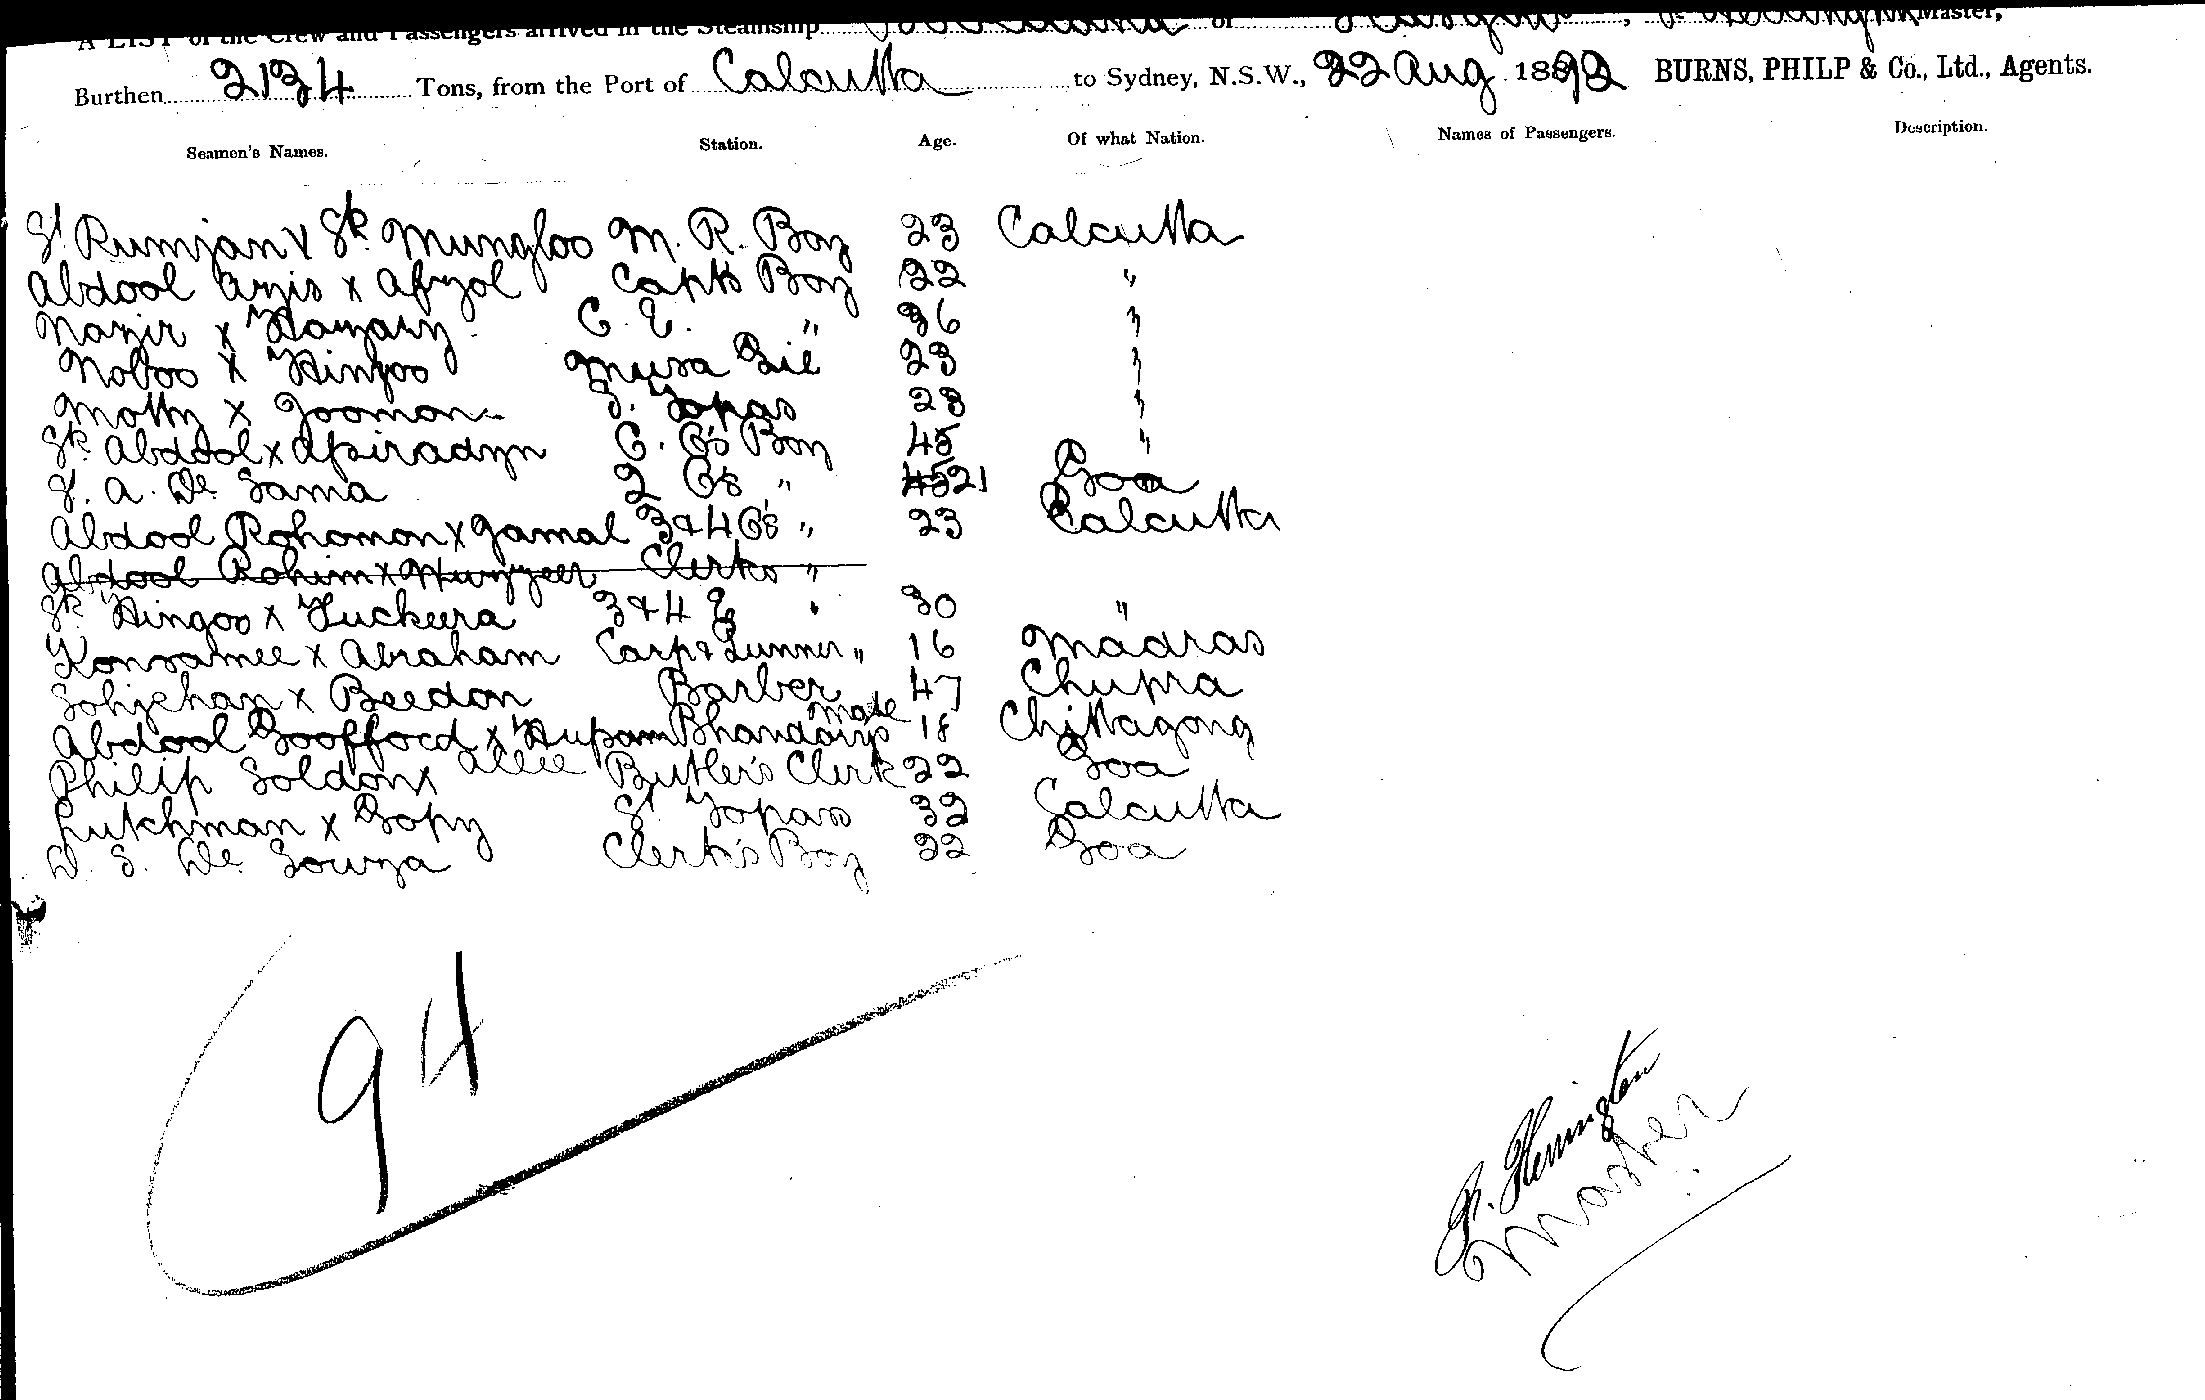 A LIST of the Crew and Passengers arrived in the Steamship of Glasgow, Master,
Burthen 2134 Tons, from the Port of Calcutta to Sydney, N.S.W., 22 Aug 1892 BURNS, PHILP & Co., Ltd., Agents.
Seamen's Names. Station. Age. Of what Nation. Names of Passengers. Description.
Rumjan x Sk. Mungloo M. R. Boy 23 Calcutta
Abdool Azis x Afzol Capts Boy 22 "
Nazir x C. E. " 36 "
Noboo x Hingoo 23 "
Motty x Joomon Topas 23 "
Sk. Abdool x C. O's Boy 45 "
A. De Gama 2 O's " 45 21 Goa
Abdool Rohomon x Jamal 3 & 4 O's " 23 Calcutta
Abdool Rohim x Clerks "
Sk Hingoo x Tuckeera 3 & 4 E " 30 "
x Abraham Carp & " 16 Madras
x Beedon Barber 47 Chupra
Abdool Goofford x Allie Bhandarys mate 18 Chittagong
Philip Soldonx Butler's Clerk 22 Goa
Lutchman x Gopy Topass 32 Calcutta
D. S. De Souza Clerk's Boy 22 Goa
94
Hennington
Master